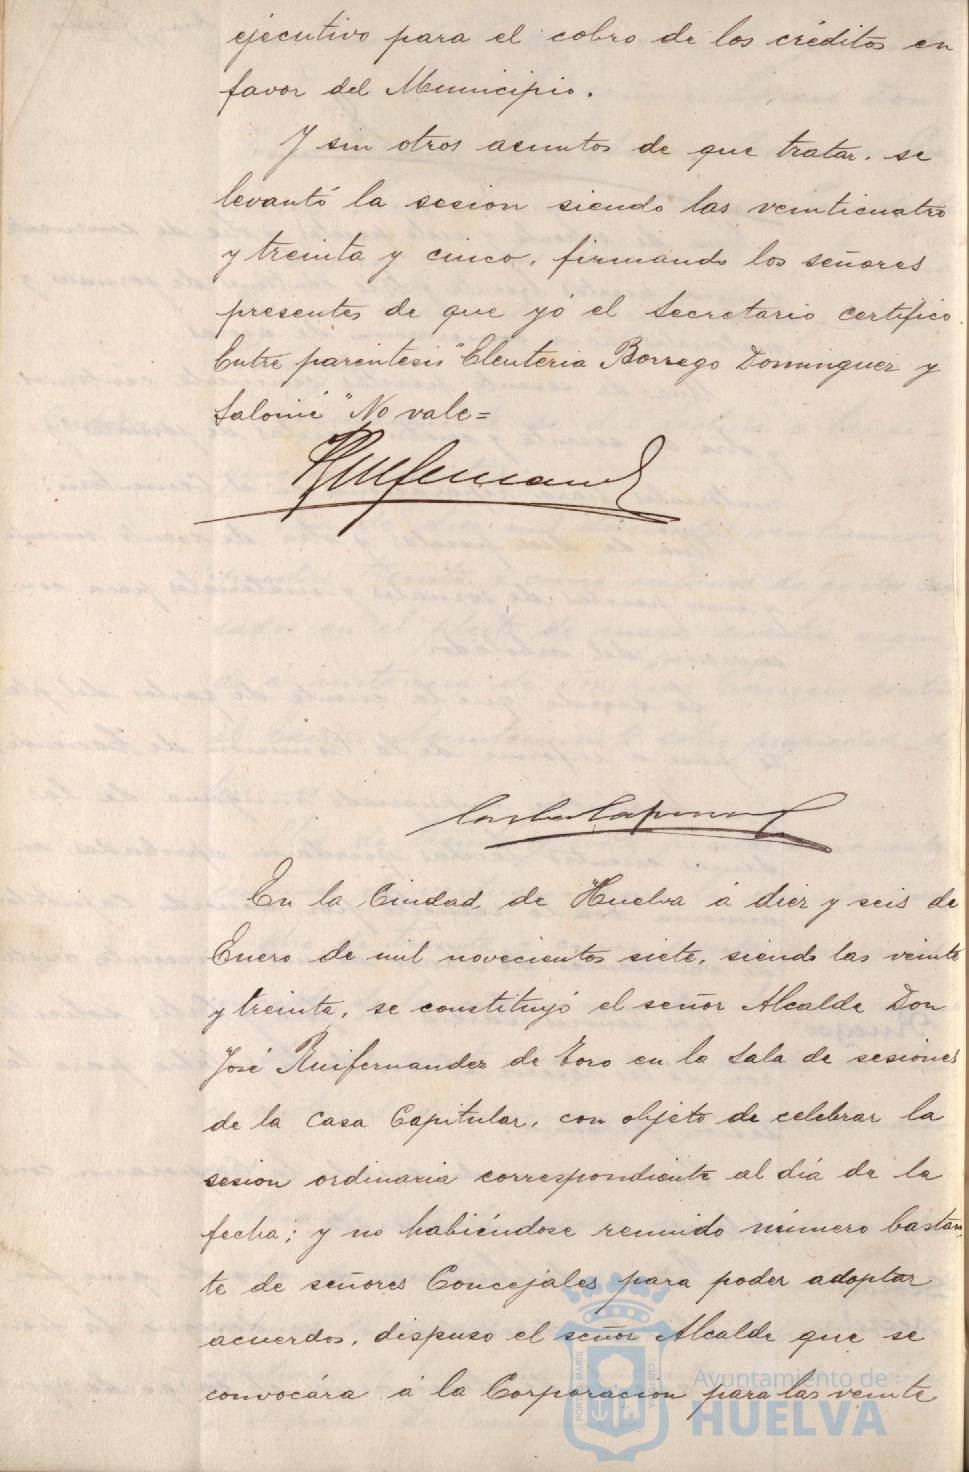 ejecutivo para el cobro de los créditos en
favor del Municipio.
Y sin otros asuntos de que tratar, se
levantó la sesion siendo las veinticuatro
y treinta y cinco, firmando los señores
presentes de que yó el Secretario certifico.
Entre parentesis "Eleuteria Borrego Dominguez y
Salomé" No vale=
Ruifernand
En la Ciudad de Huelva á diez y seis de
Enero de mil novecientos siete, siendo las veinte
y treinta, se constituyó el señor Alcalde Don
José Ruifernandez de Toro en la Sala de sesiones
de la Casa Capitular, con objeto de celebrar la
sesion ordinaria correspondiente al día de la
fecha; y no habiéndose reunido número bastan
te de señores Concejales para poder adoptar
acuerdos, dispuso el señor Alcalde que se
convocára á la Corporacion para las veinte
Ayuntamiento de
HUELVA